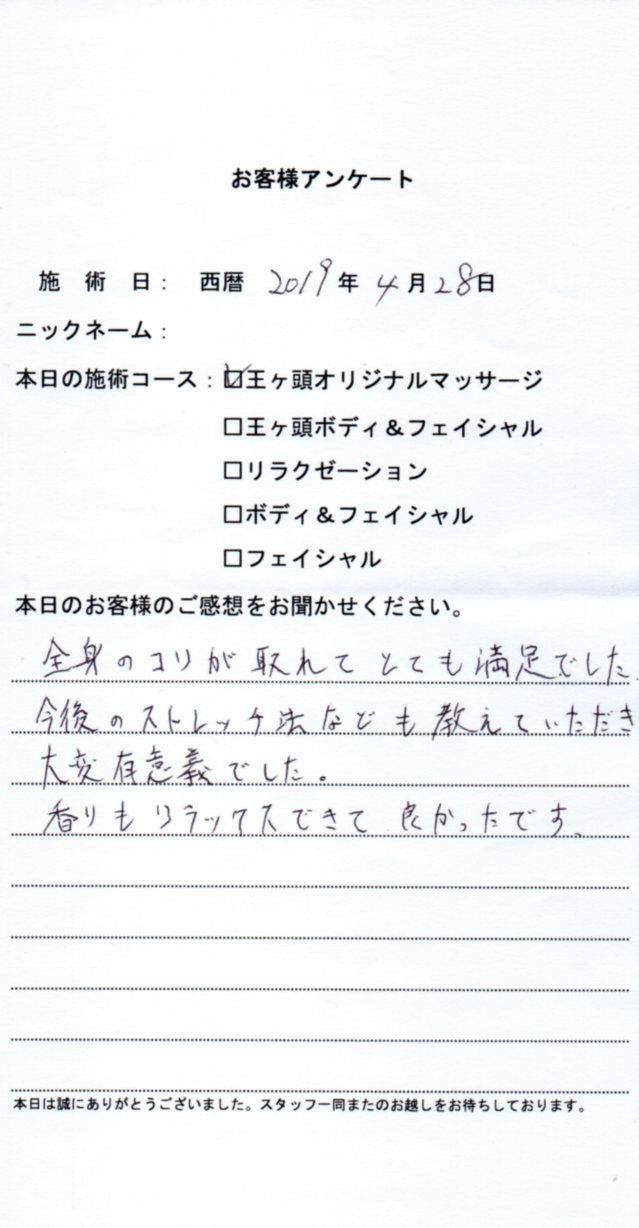 お客様アンケート
施術日：西暦 2019年 4月28日
ニックネーム：
本日の施術コース：☑王ヶ頭オリジナルマッサージ
□王ヶ頭ボディ＆フェイシャル
□リラクゼーション
□ボディ＆フェイシャル
□フェイシャル
本日のお客様のご感想をお聞かせください。
全身のコリが取れてとても満足でした。
今後のストレッチ法なども教えていただき
大変有意義でした。
香りもリラックスできて良かったです。
本日は誠にありがとうございました。スタッフ一同またのお越しをお待ちしております。